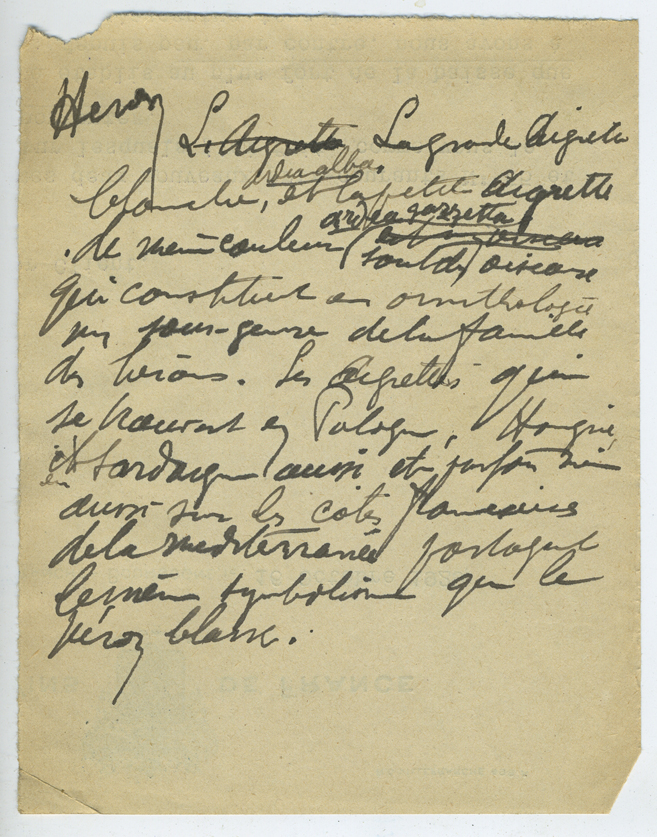 Heron
L'Aigrette La grande Aigrette
ardea alba
blanche, et la petite Aigrette
ardea garzetta
de même couleur (
sont des oiseaux
qui constituent en ornithologie
un sous-genre de la famille
des hérons. Les Aigrettes qui
se trouvent en Pologne, Hongrie,
en Sardaigne aussi et parfois
aussi sur les côtes françaises
de la mediterranée partagent
le même symbolisme que le
héron blanc.
DE FRANCE